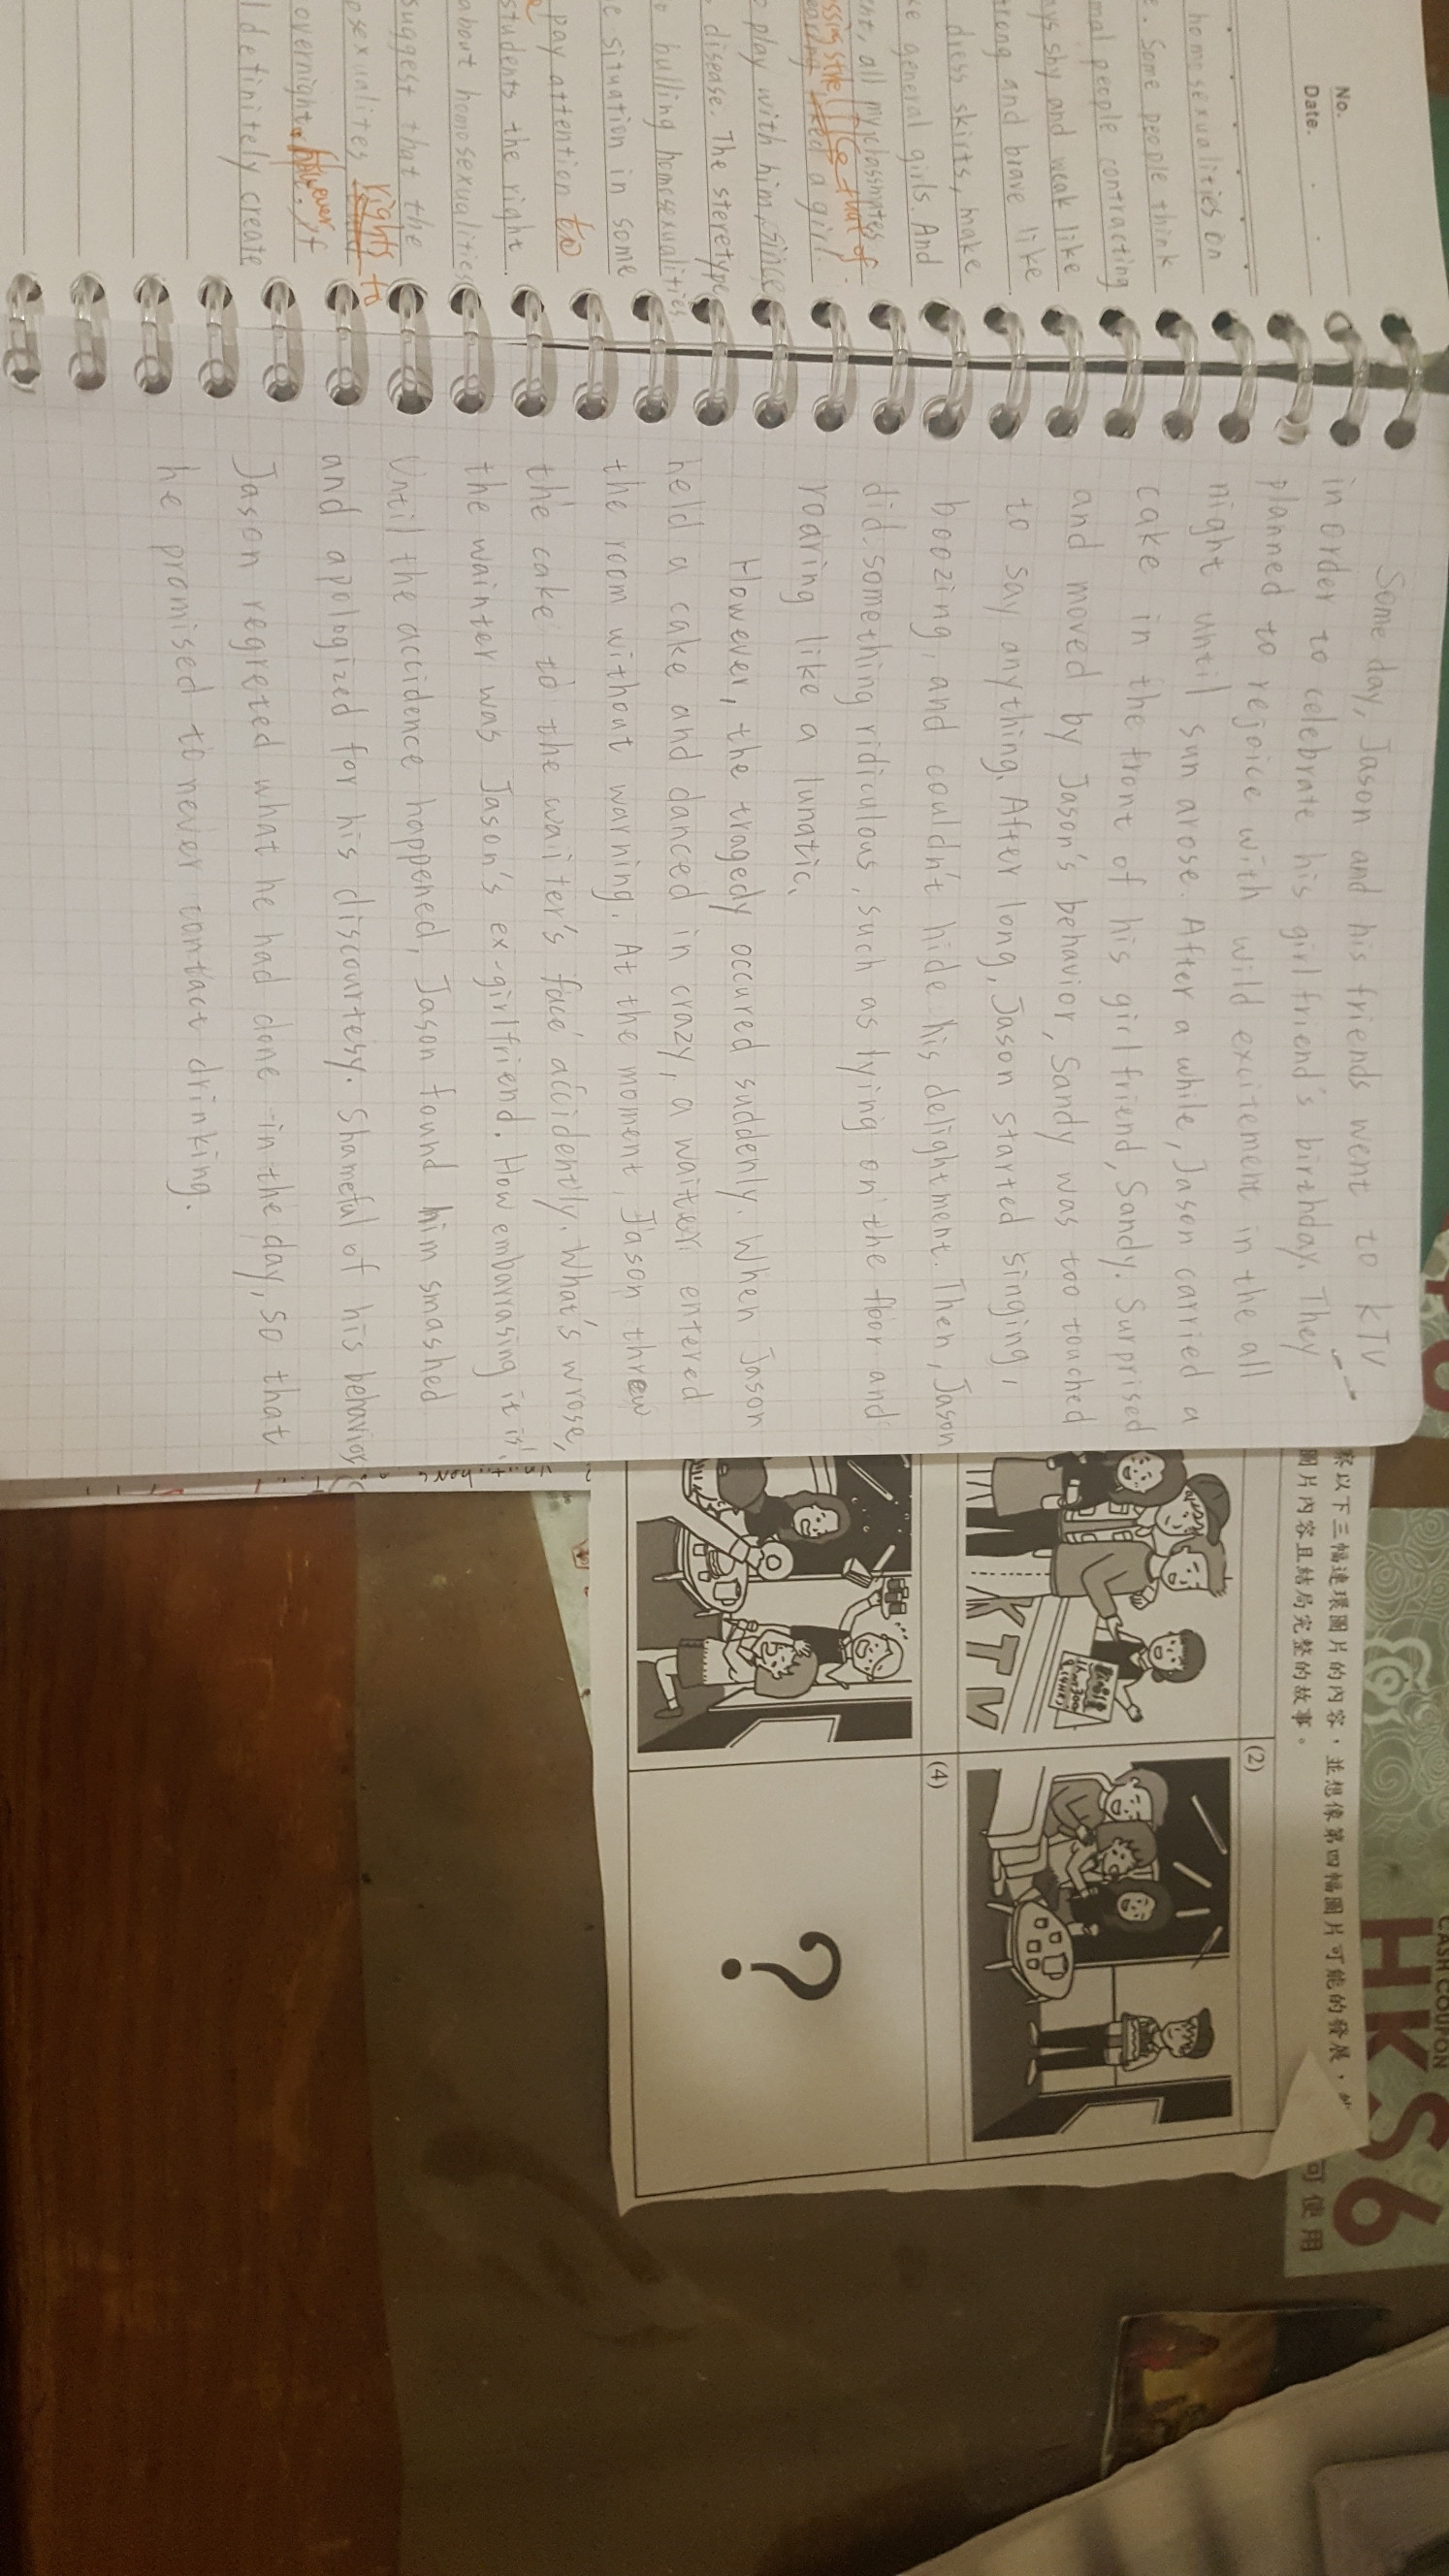 No.
Date.
homosexualities on
e. Some people think
mal people contracting
ays shy and weak like
trong and brave like
dress skirts, make
ke general girls. And
ent, all my classmates
that of
liked a girl.
o play with him, since
disease. The steretype
o bulling homosexualities
e situation in some
pay attention to
students the right
about homosexualities
suggest that the
osexualites right to
overnight. However, if
l definitely create
Some day, Jason and his friends went to KTV
in order to celebrate his girl friend's birthday. They
planned to rejoice with wild excitement in the all
night until sun arose. After a while, Jason carried a
cake in the front of his girl friend, Sandy. Surprised
and moved by Jason's behavior, Sandy was too touched
to say anything. After long, Jason started singing,
boozing, and couldn't hide his delightment. Then, Jason
did something ridiculous, such as lying on the floor and
roaring like a lunatic.
However, the tragedy occured suddenly. When Jason
held a cake and danced in crazy, a waiter entered
the room without warning. At the moment, Jason threw
the cake to the waiter's face accidently. What's wrose,
the wainter was Jason's ex-girlfriend. How embarrasing it is!
Until the accidence happened, Jason found him smashed
and apologized for his discourtesy. Shameful of his behavior
Jason regreted what he had done in the day, so that
he promised to never contact drinking.
察以下三幅連環圖片的內容，並想像第四幅圖片可能的發展，
圖片內容且結局完整的故事。
(2)
KTV
(4)
?
CASH COUPON
HK$6
可使用